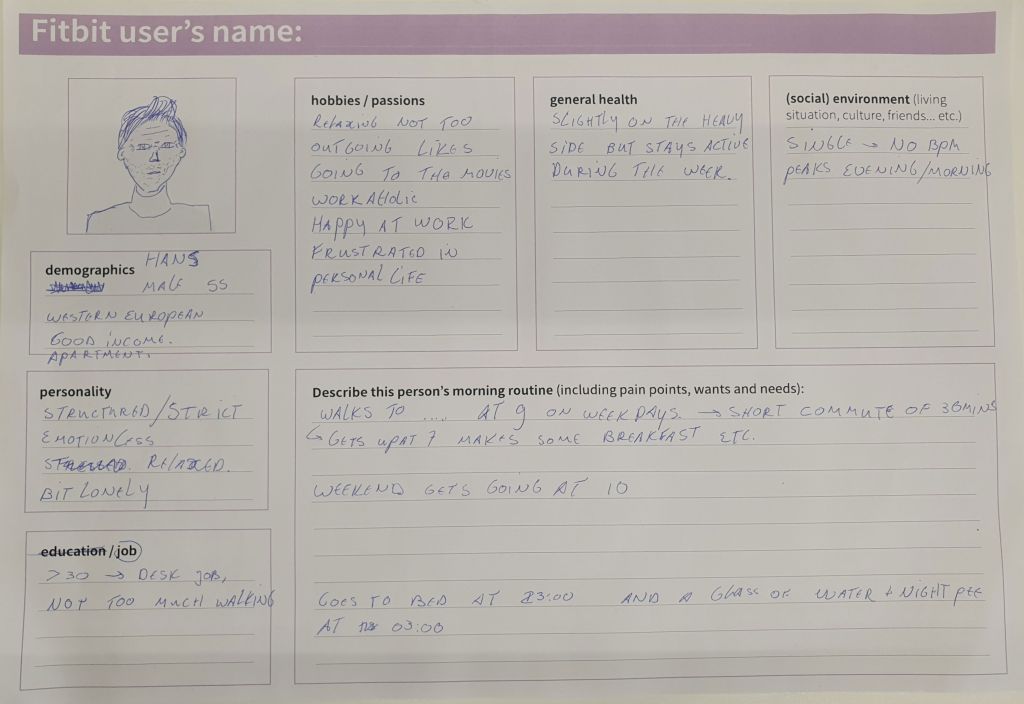 Fitbit user's name:
hobbies / passions
RELAXING NOT TOO
OUTGOING LIKES
GOING TO THA MOVIES
WORKAHOLIC
HAPPY AT WORK
FRUSTRATED IN
PERSONAL LIFE
general health
SLIGHTLY ON THE HEAVY
SIDE BUT STAYS ACTIVE
DURING THE WEEK.
(social) environment (living
situation, culture, friends... etc.)
SINGLE → NO BPM
PEAKS EVENING/MORNING
demographics HANS
MALE 55
WESTERN EUROPEAN
GOOD INCOME.
APARTMENT.
personality
STRUCTURED/STRICT
EMOTIONLESS
RELAXED.
BIT LONELY
education / job
>30 → DESK JOB,
NOT TOO MUCH WALKING
Describe this person's morning routine (including pain points, wants and needs):
WALKS TO .... AT 9 ON WEEKDAYS. → SHORT COMMUTE OF 30MINS
↳ GETS UP AT 7 MAKES SOME BREAKFAST ETC.
WEEKEND GETS GOING AT 10
GOES TO BED AT 23:00 AND A GLASS OF WATER + NIGHT PEE
AT 03:00